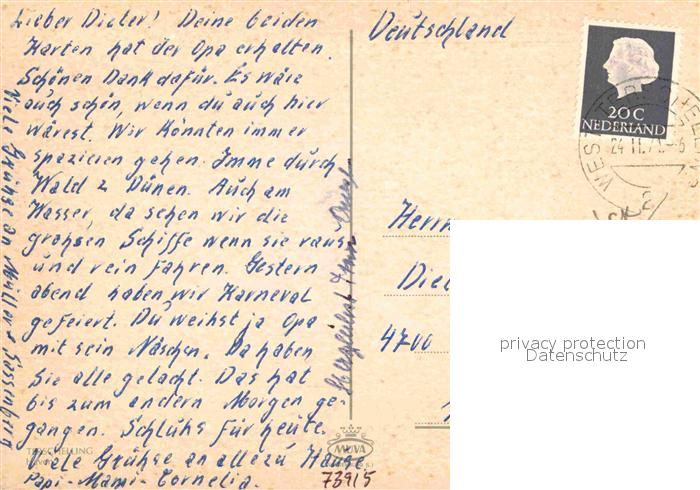 Lieber Dieter! Deine beiden
Karten hat der Opa erhalten.
Schönen Dank dafür. Es wäre
auch schön, wenn du auch hier
wärest. Wir könnten immer
spazieren gehen. Imme durch
Wald z Dünen. Auch am
Wasser, da sehen wir die
grohsen Schiffe wenn sie raus
und rein fahren. Gestern
abend haben wir Karneval
gefeiert. Du weihst ja Opa
mit sein Näschen. Da haben
Sie alle gelacht. Das hat
bis zum andern Morgen ge-
gangen. Schluhs für heute.
Viele Grühse an alle zu Hause
Papi-Mami-Cornelia.
Viele Grühse an Müller
TERSCHELLING
MUVA
73915
Deutschland
20 C
NEDERLAND
WEST TERSCHELLING
24.11.71
Herrn
Die
4700
privacy protection
Datenschutz